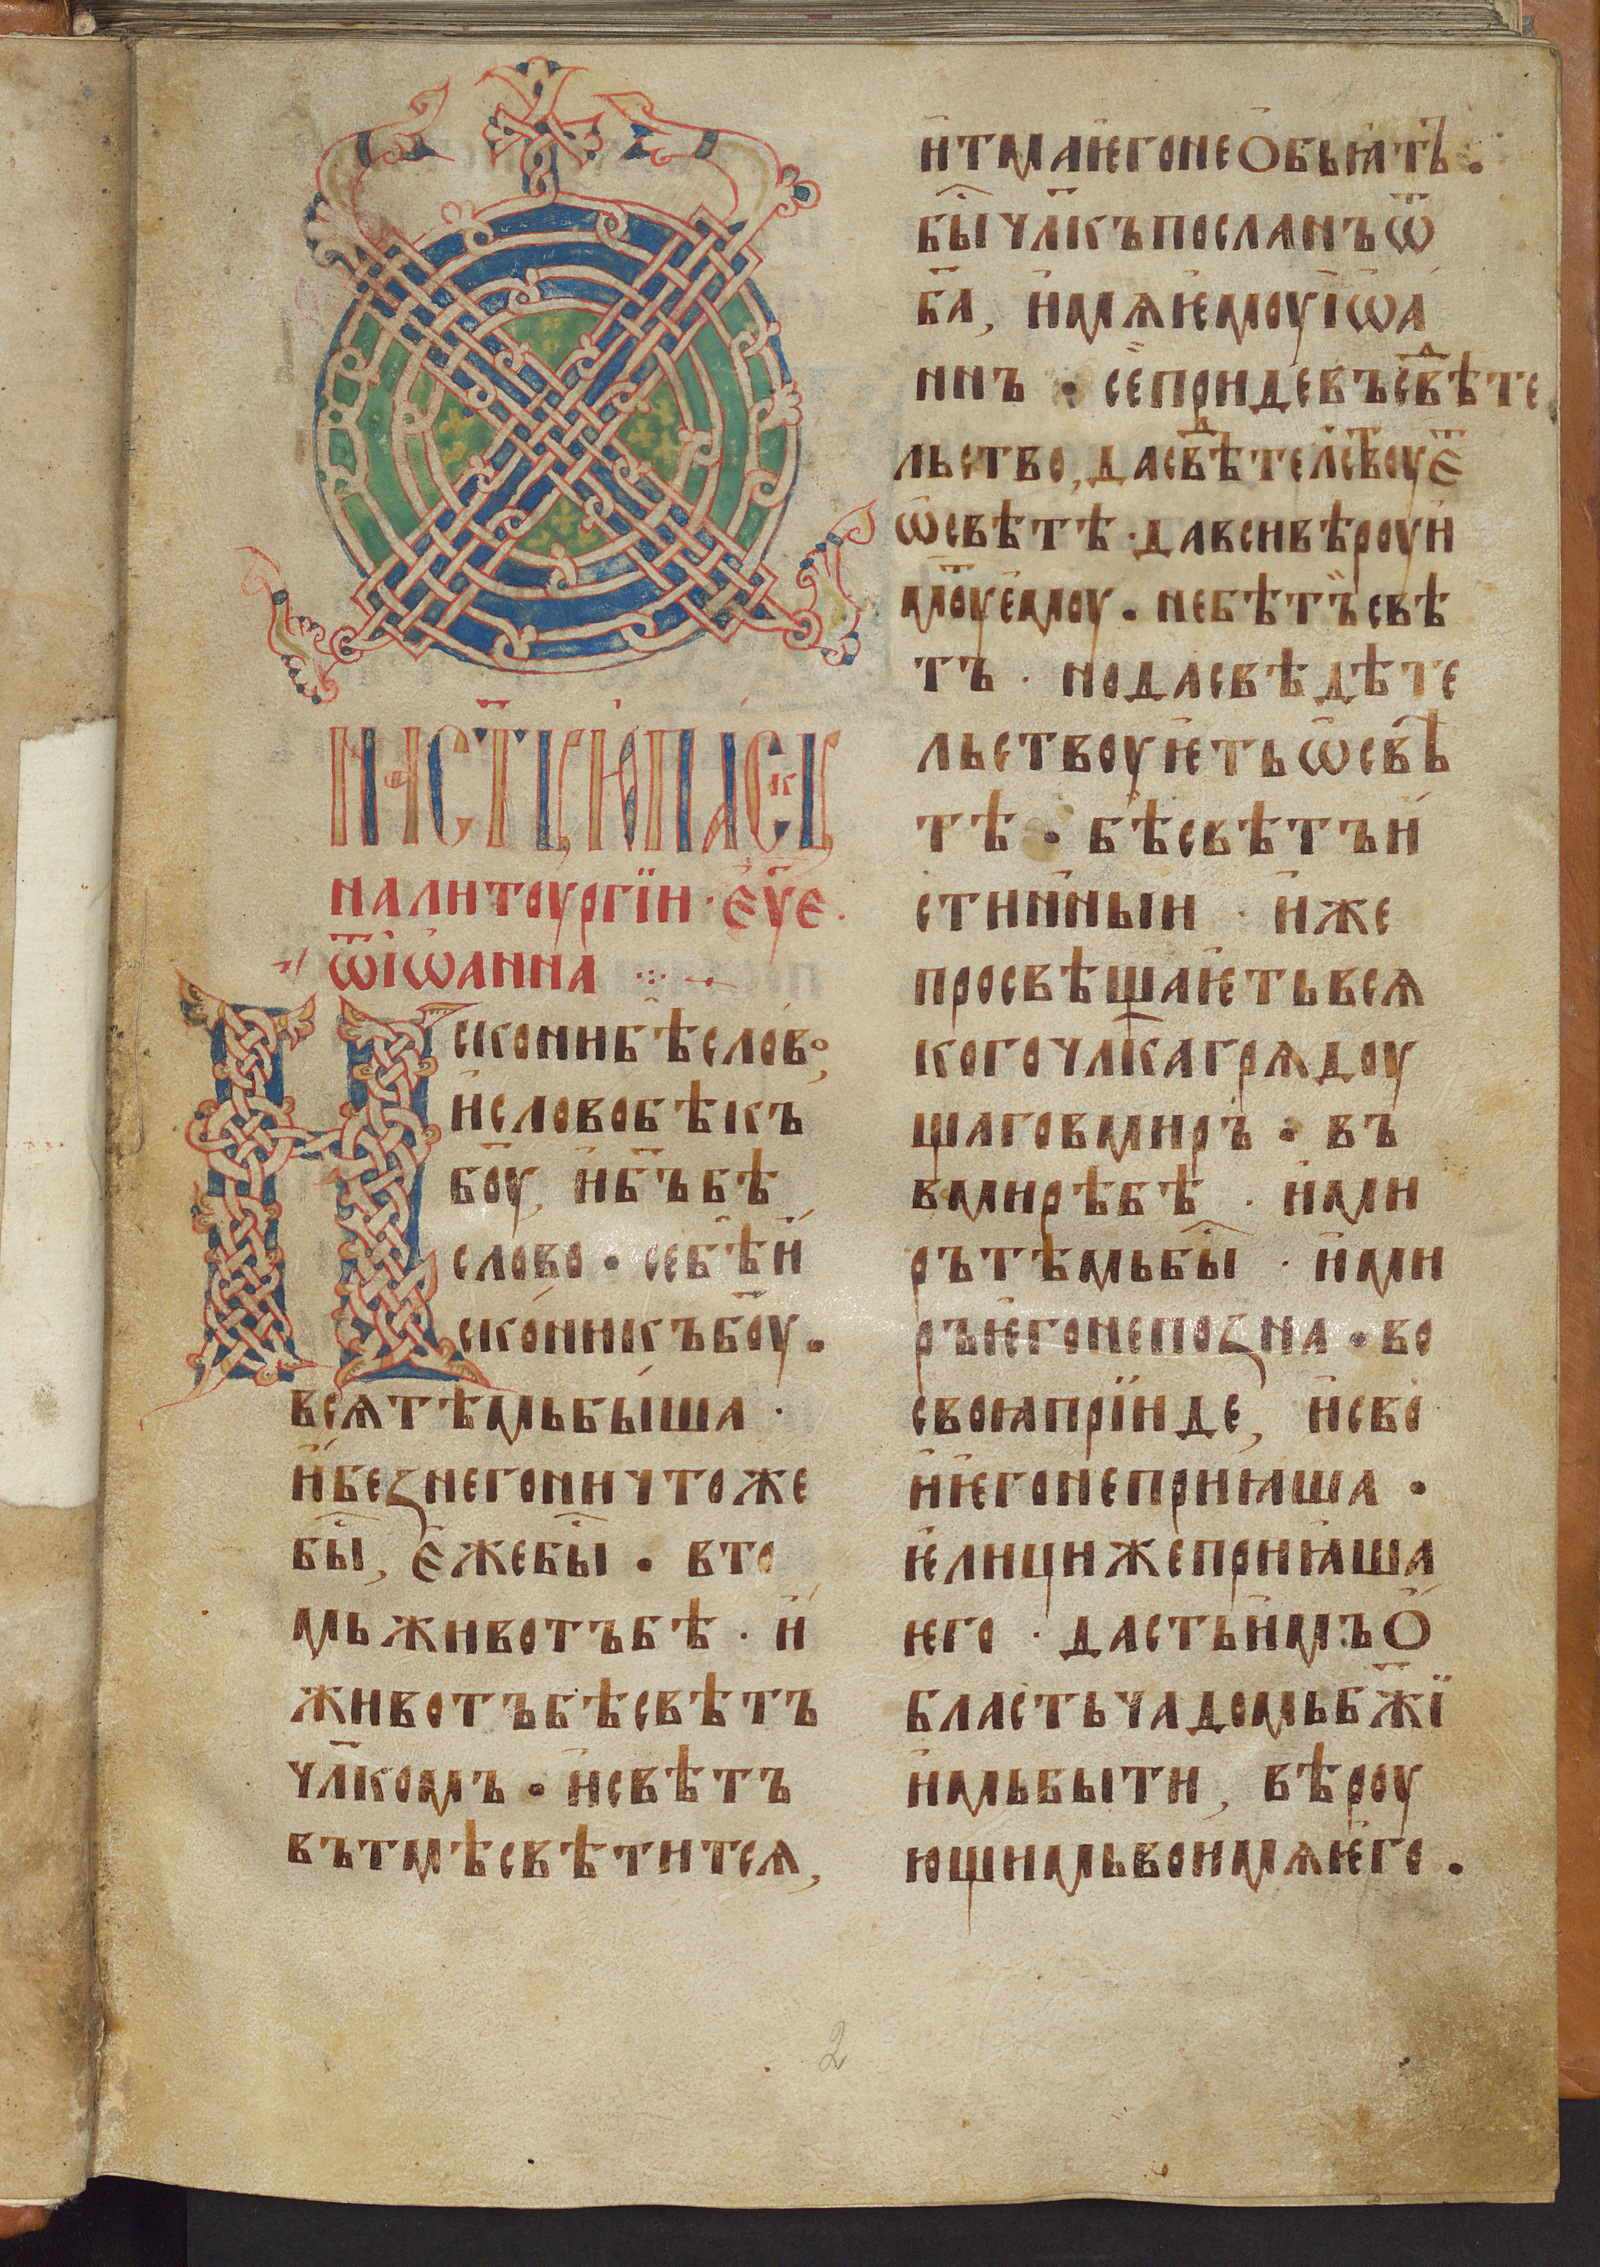 налитоургїи · єѵ҃е ·
ѿ іѡанна
искони бѣ слово,
и слово бѣ къ
б҃оу, и б҃ъ бѣ
слово • се бѣ и
скони къ б҃оу •
вся тѣмь быша ·
и без него ничтоже
бы̑, єже бы̑ • в то
мь животъ бѣ · и
животъ бѣ свѣтъ
чл҃комъ • и свѣтъ
въ тмѣ свѣтится,
и тма ѥго не обьꙗтъ •
бы̑ чл҃къ посланъ ѿ
б҃а, имѧ ѥмоу іѡа
ннъ • се приде въ свѣте
льство, да свѣтельс
ѡ свѣтѣ · да вси вѣроу и
моу емоу • не бѣ тъ свѣ
тъ · но да свѣдѣте
льствоуѥть ѡ свѣ
тѣ • бѣ свѣтъ и
стинныи · иже
просвѣщаѥть всѧ
кого чл҃ка грѧдоу
щаго в миръ • въ
в мирѣ бѣ · и ми
ръ тѣмь бы̑ · и ми
ръ ѥго не позна • во
своꙗ прїиде, и сво
и ѥго не приꙗша •
ѥлици же приꙗша
ѥго · дасть имъ о
бласть чадомь б҃жї
имь быти, вѣроу
ющимь во имѧ ѥго •
2